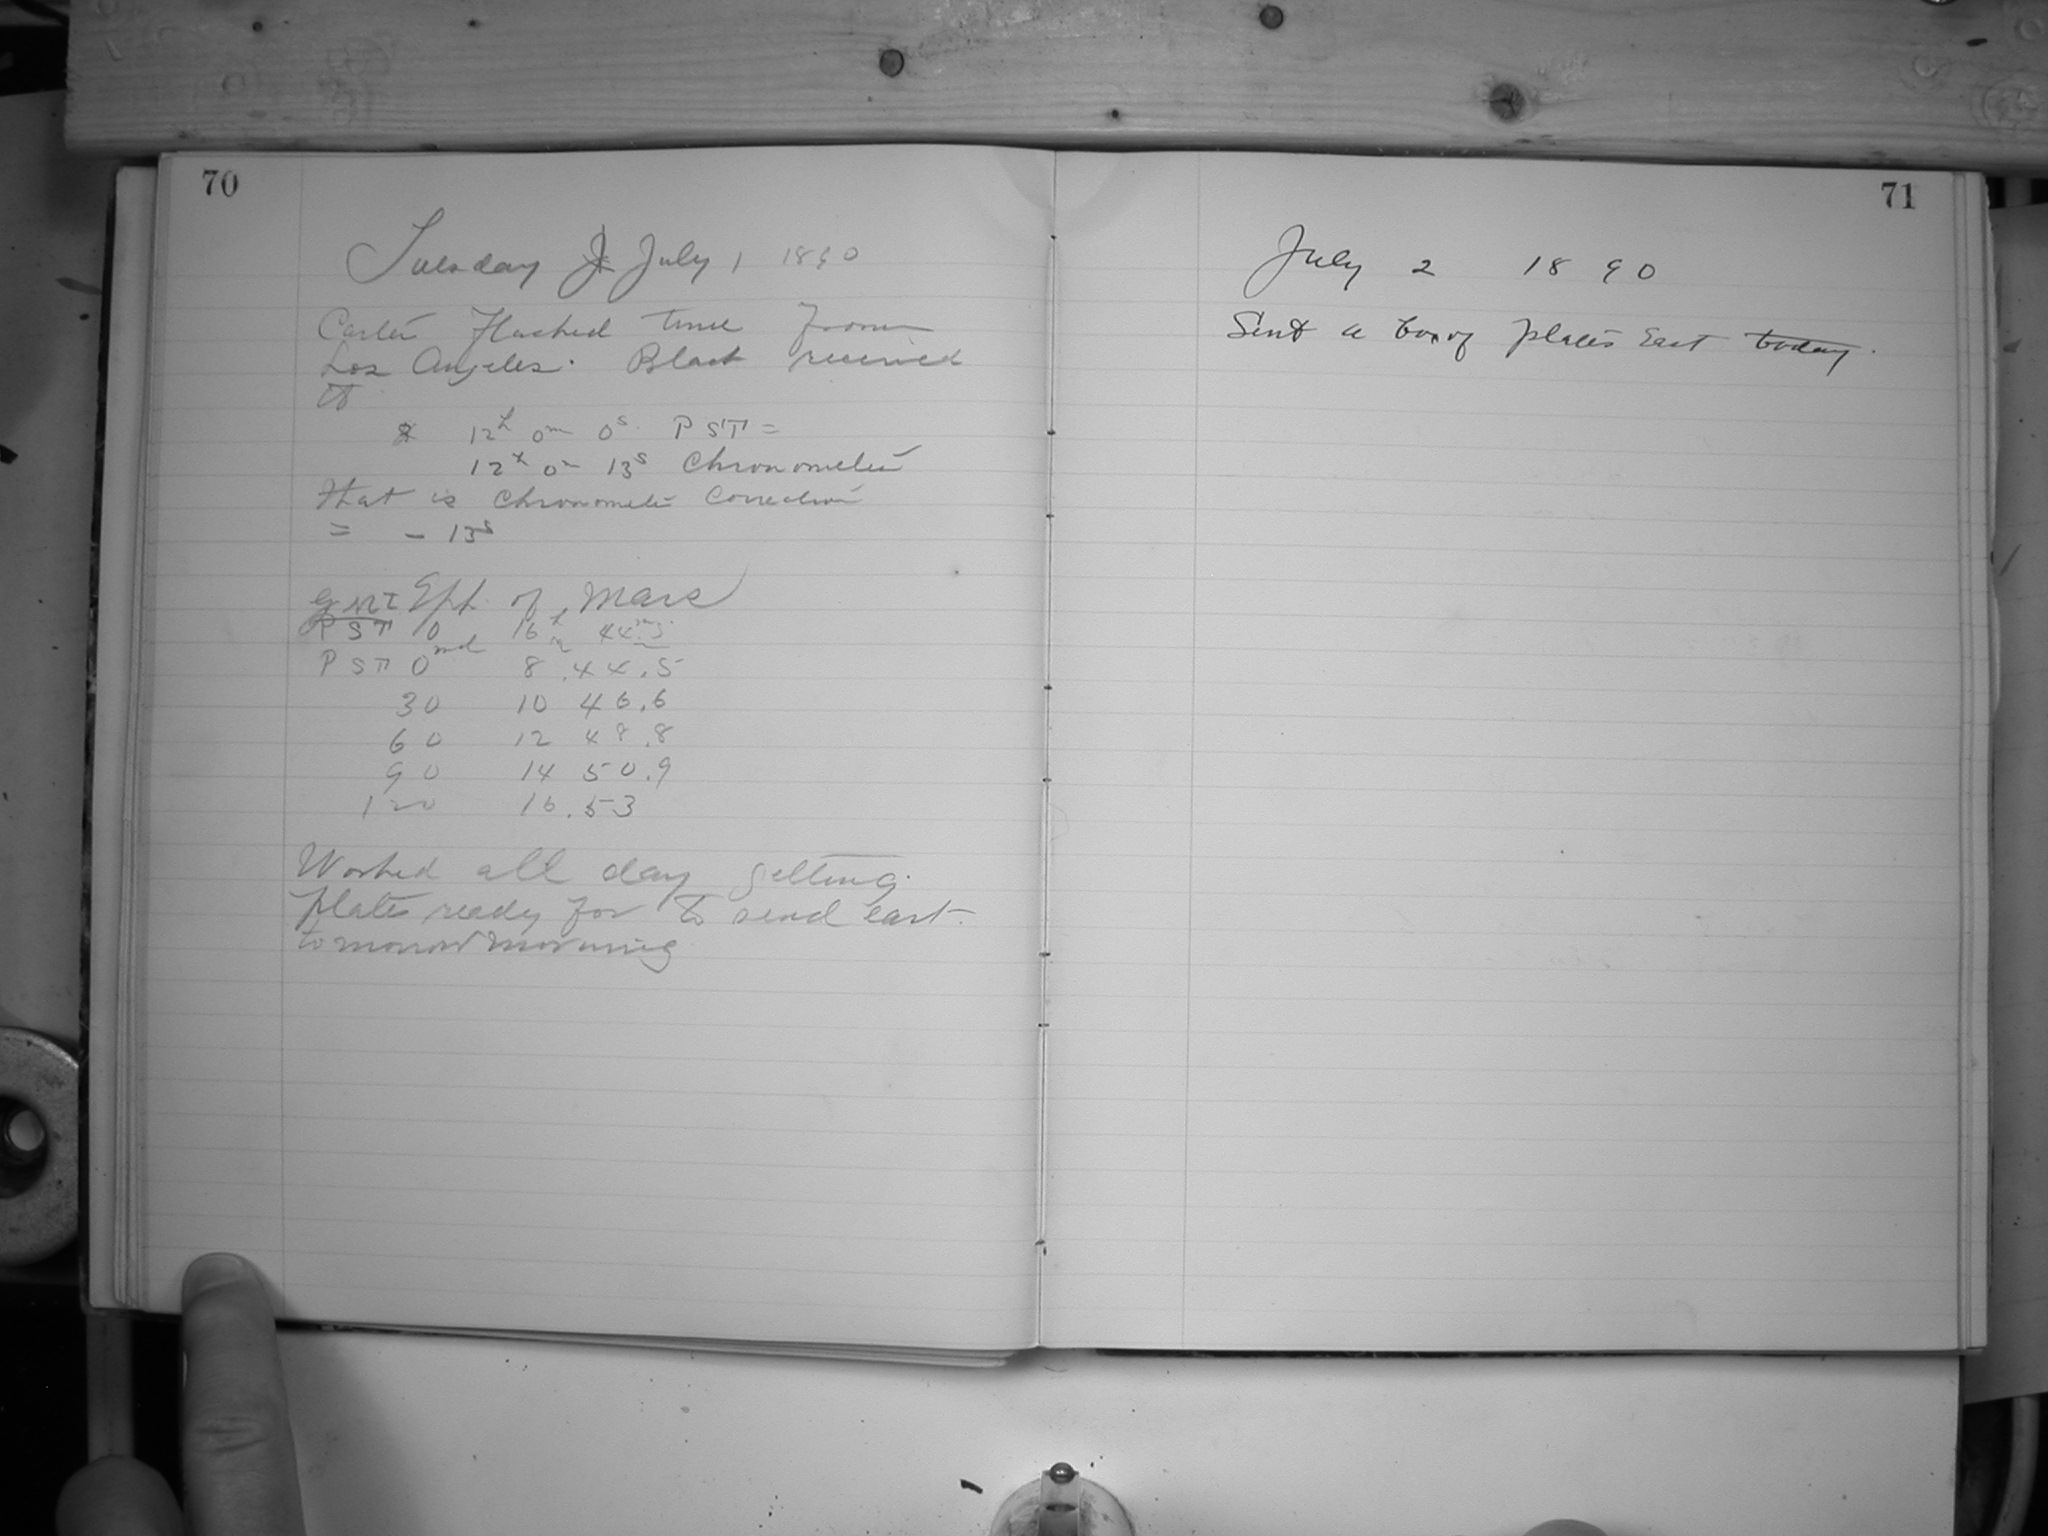 70
Tuesday July 1 1890
Carter flashed time from
Los Angeles. Black received
it
12h 0m 0s PST =
12h 0m 13s Chronometer
that is Chronometer Correction
= - 13s
GMT Eph of Mars
PST 0 16h 44m.5
PST 0md 8 .44.5
30 10 46.6
60 12 48.8
90 14 50.9
120 16.53
Worked all day getting
plates ready for to send east
tomorrow morning
71
July 2 1890
Sent a box of plates East today.